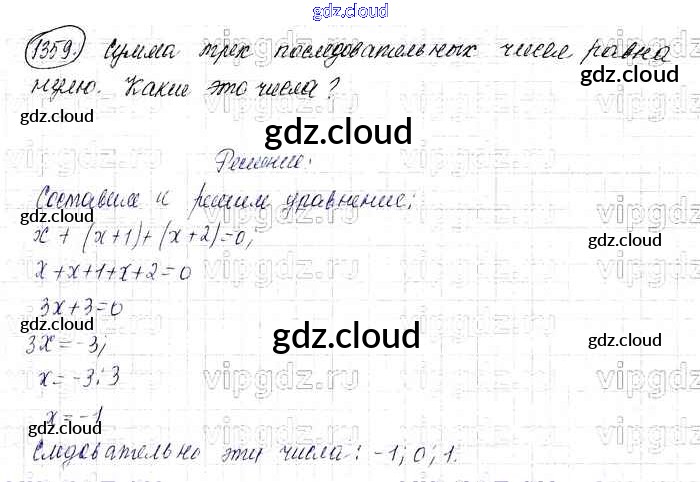 gdz.cloud
1359. Сумма трех последовательных чисел равна
нулю. Какие это числа?
gdz.cloud
gdz.cloud
gdz.cloud
Решение.
Составим и решим уравнение:
gdz.cloud
x + (x+1)+(x+2)=0,
gdz.cloud
x+x+1+x+2=0
3x+3=0
gdz.cloud
3x=-3,
gdz.cloud
gdz.cloud
x=-3:3
vipgdz.ru
x=-1
gdz.cloud
gdz.cloud
Следовательно эти числа: -1; 0; 1.